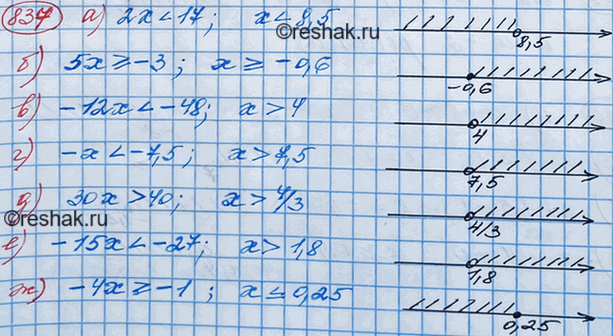 837 а) 2x < 17; x < 8,5 8,5
©reshak.ru
б) 5x ≥ -3; x ≥ -0,6 -0,6
в) -12x < -48; x > 4 4
г) -x < -7,5; x > 7,5 7,5
д) 30x > 40; x > 4/3 4/3
©reshak.ru
е) -15x < -27; x > 1,8 1,8
ж) -4x ≥ -1; x ≤ 0,25 0,25
©reshak.ru